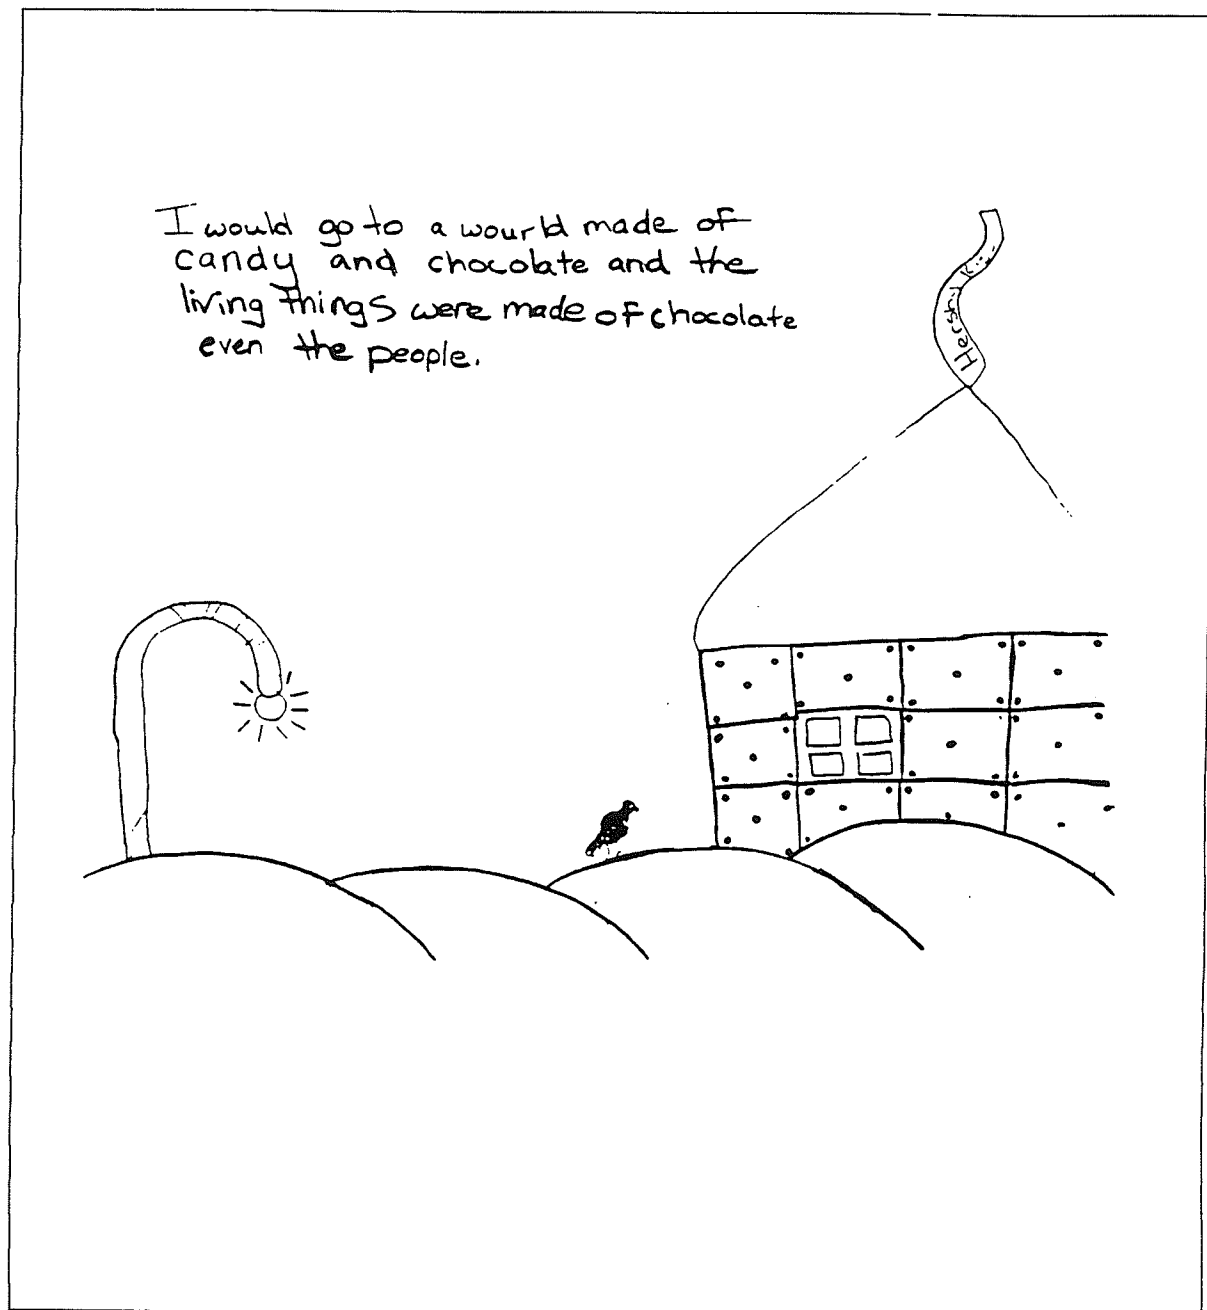 I would go to a wourld made of
candy and chocolate and the
living things were made of chocolate
even the people.
Hershy